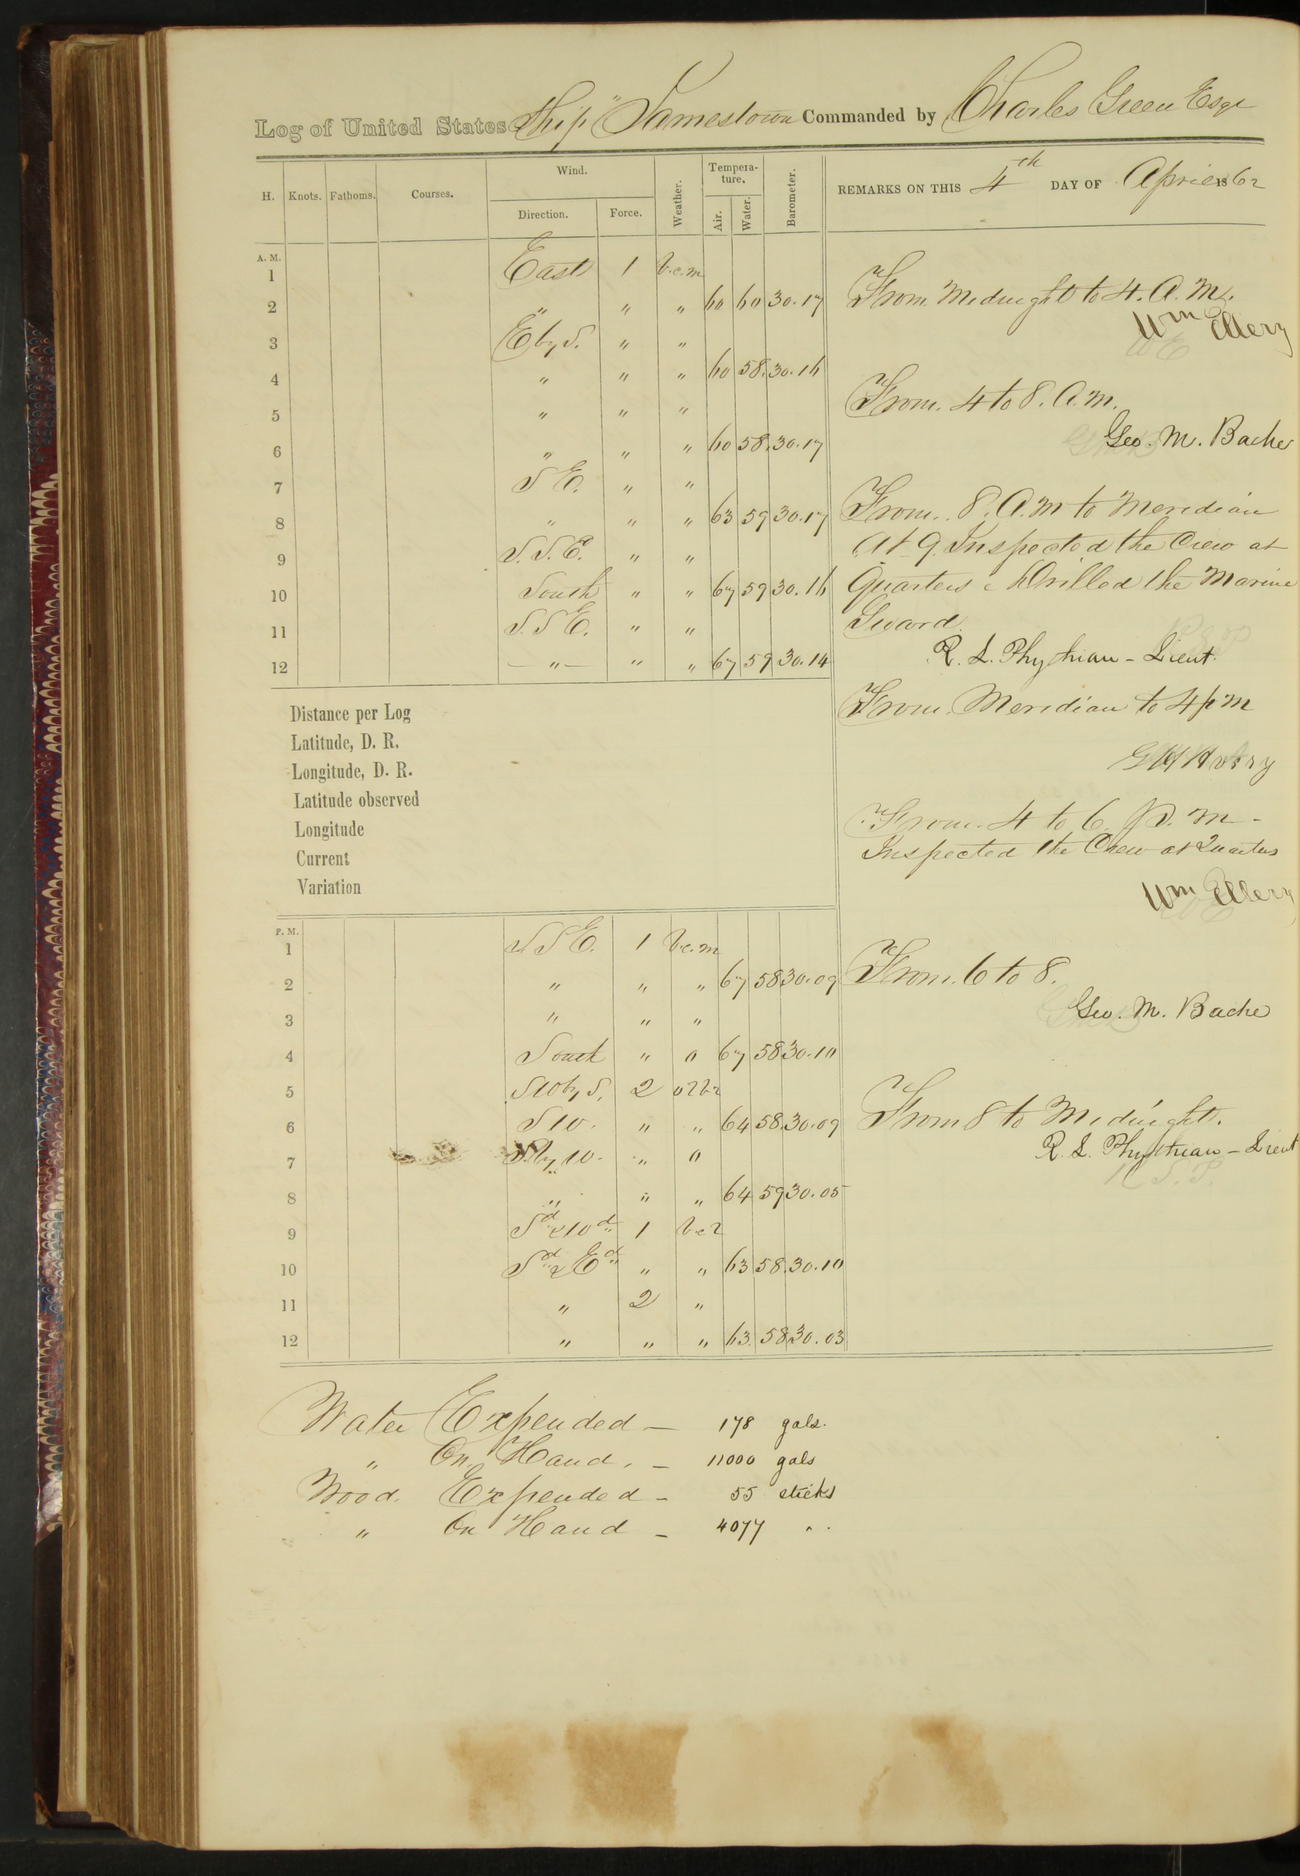 Log of United States Ship "Jamestown" Commanded by Charles Green Esqr
H. Knots. Fathoms. Courses. Wind. Direction. Force. Weather. Tempera-ture. Air. Water. Barometer. REMARKS ON THIS 4th DAY OF April 1862
A. M.
1 East 1 b.c.m
2 " " " 60 60 30.17
3 E by S. " "
4 " " " 60 58 30.16
5 " " "
6 " " " 60 58 30.17
7 S E. " "
8 " " " 63 59 30.17
9 S. S. E. " "
10 South " " 67 59 30.16
11 S. S E. " "
12 " " " 67 59 30.14
From Midnight to 4. A. M.
Wm Ellery
From. 4 to 8. A. M.
Geo. M. Bache
From. 8. A. M to Meridian
At 9 Inspected the Crew at
Quarters & Drilled the Marine
Guard.
R. L. Phythian - Lieut.
From. Meridian to 4 p m
From. 4 to 6. P. M -
Inspected the Crew at Quarters
Wm Ellery
Distance per Log
Latitude, D. R.
Longitude, D. R.
Latitude observed
Longitude
Current
Variation
P. M.
1 S S E. 1 b.c.m
2 " " " 67 58 30.09
3 " " "
4 South " o 67 58 30.10
5 SW by S. 2
6 S W. " " 64 58 30.09
7 S by W. " o
8 " " " 64 59 30.05
9 Sd & Wd 1 bcr
10 Sd & Ed " " 63 58 30.10
11 " 2 "
12 " " " 63 58 30.03
From. 6 to 8.
Geo. M. Bache
From 8 to Midnight.
R. L. Phythian - Lieut
Water Expended - 178 gals.
" On Hand. - 11000 gals
Wood. Expended - 55 sticks
" On Hand - 4077 "